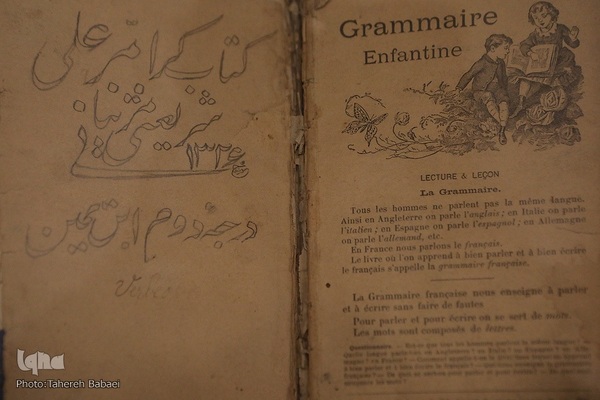 کتاب گرامر علی
شریعتی مزینانی
۱۳۲۶
درجه دوم ابن یمین
Grammaire
Enfantine
LECTURE & LEÇON
La Grammaire.
Tous les hommes ne parlent pas la même langue.
Ainsi en Angleterre on parle l'anglais; en Italie on parle
l'italien; en Espagne on parle l'espagnol; en Allemagne
on parle l'allemand, etc.
En France nous parlons le français.
Le livre où l'on apprend à bien parler et à bien écrire
le français s'appelle la grammaire française.
La Grammaire française nous enseigne à parler
et à écrire sans faire de fautes
Pour parler et pour écrire on se sert de mots.
Les mots sont composés de lettres.
iqna
Photo: Tahereh Babaei